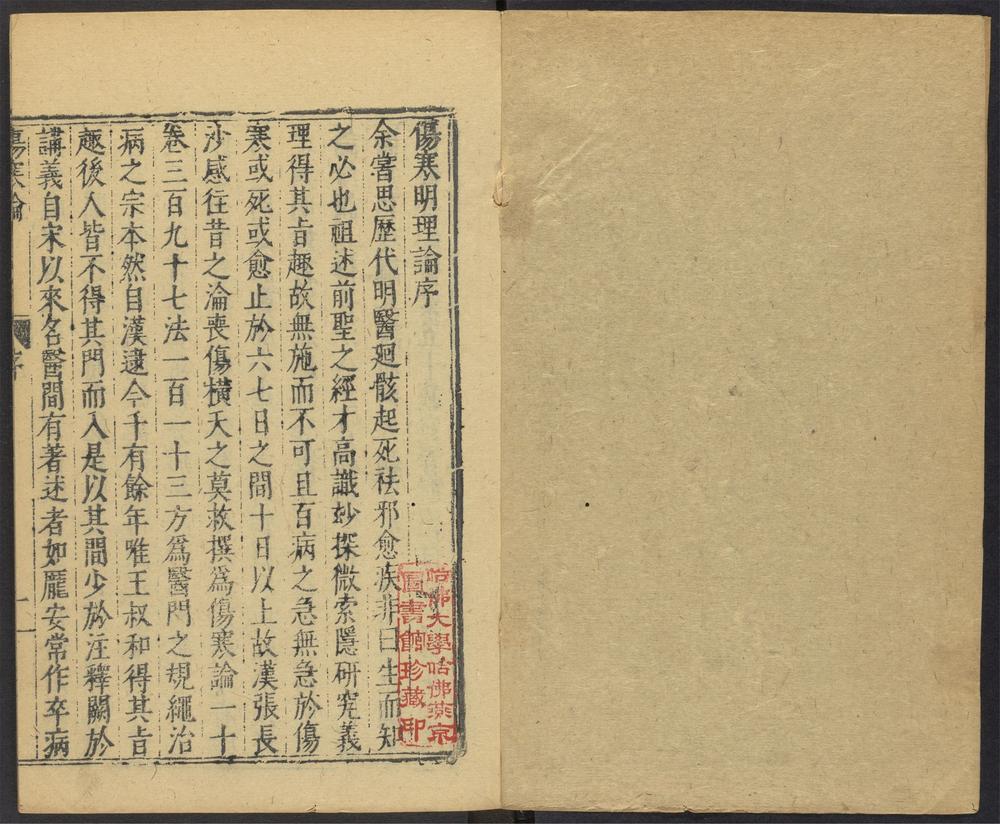 傷寒明理論序
余嘗思歷代明醫廻骸起死祛邪愈疾非曰生而知
之必也祖述前聖之經才高識妙探微索隱研究義
理得其旨趣故無施而不可且百病之急無急於傷
寒或死或愈止於六七日之間十日以上故漢張長
沙感往昔之淪喪傷橫夭之莫救撰為傷寒論一十
卷三百九十七法一百一十三方為醫門之規繩治
病之宗本然自漢逮今千有餘年唯王叔和得其旨
趣後人皆不得其門而入是以其間少於注釋闕於
講義自宋以來名醫間有著述者如龐安常作卒病
傷寒論 序 一
哈佛大學哈佛燕京
圖書館珍藏印